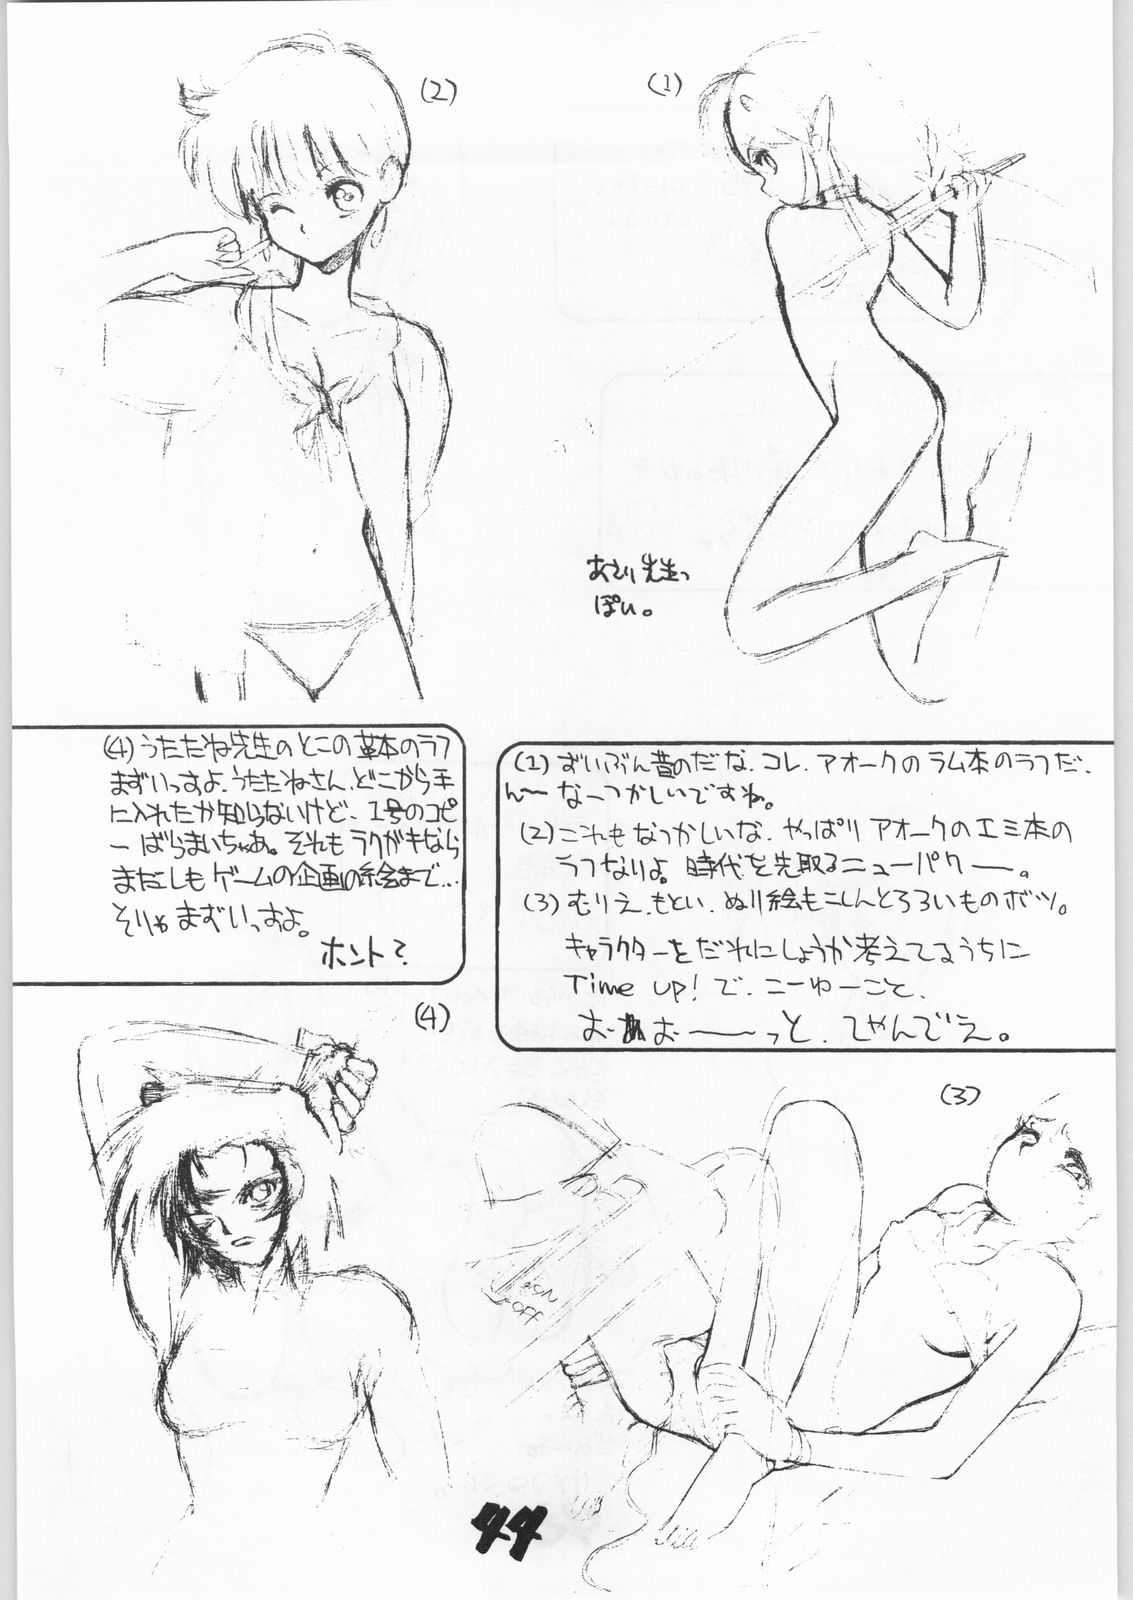 (2)
(1)
あさり先生っ
ぽい。
(4) うたたね先生のとこの革本のラフ
まずいっすよ、うたたねさん、どこから手
に入れたか知らないけど、1号のコピ
ー ばらまいちゃあ。それもラクガキなら
まだしもゲームの企画の絵まで…
そりゃまずいっすよ。
ホント?
(1) ずいぶん昔のだな、コレ、アオークのラム本のラフだ、
ん〜 なーつかしいですね。
(2) これもなつかしいな、やっぱりアオークのエミ本の
ラフなりよ。時代を先取るニューパワー。
(3) むりえ、もとい、ぬり絵もこしんとろろいものボツ。
キャラクターをだれにしょうか考えてるうちに
Time up! で、こーゆーこと、
お おーーーっと、てやんでえ。
(4)
(3)
ON
OFF
44